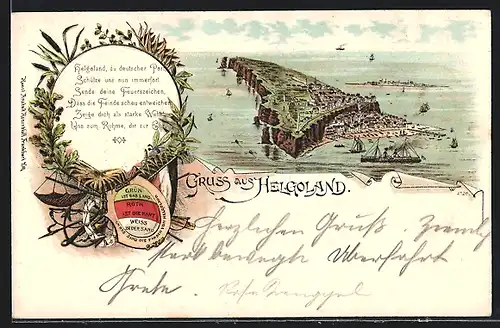 Helgoland, du deutscher
Schütze uns nun immerfort
Sende deine Feuerszeichen,
Dass die Feinde scheu entweichen
Zeige dich als starke
zum Ruhme, dir zur
GRÜN
IST DAS LAND
ROTH
IST DIE KANT
WEISS
IST DER SAND
GRUSS AUS HELGOLAND.
Herzlichen Gruß Ziemlich
stark bewegte Überfahrt.
Grete.